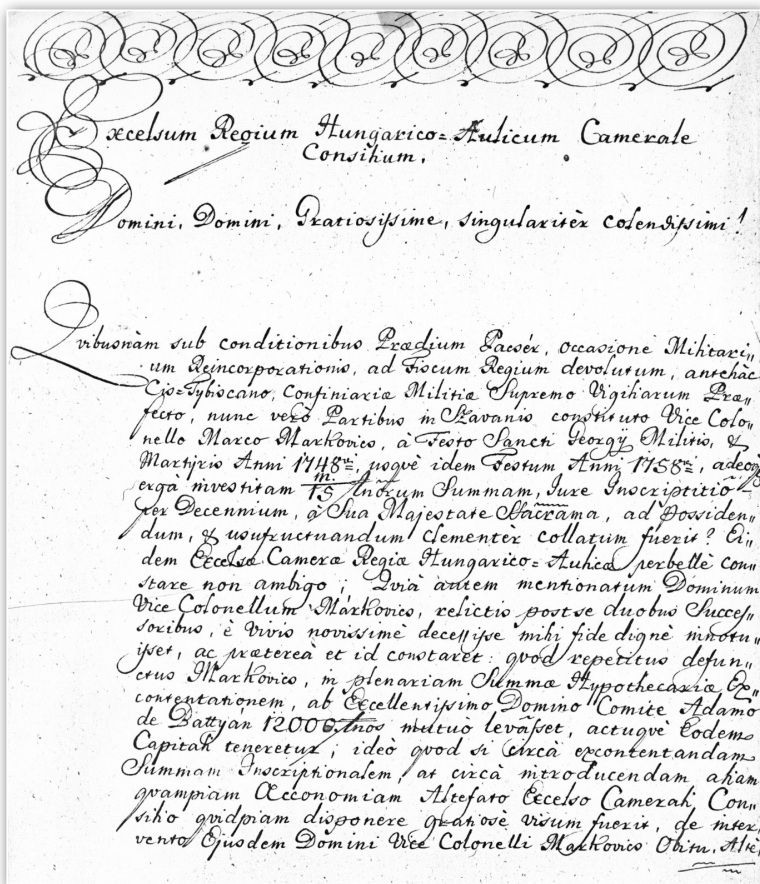 Excelsum Regium Hungarico=Aulicum Camerale
Consilium.
Domini, Domini, Gratiosissime, singularitèr colendissimi!
Qvibusnàm sub conditionibus Prædium Pacsér, occasionè Militari„
um Reincorporationis, ad Fiscum Regium devolutum, antehàc
Cis=Tybiscano, Confiniariæ Militiæ Supremo Vigiliarum Præ„
fecto, nunc verò Partibus in Slavaniis constituto Vice Colo„
nello Marco Markovics, à Festo Sancti Georgy Militis, &
Martÿris Anni 1748, usqvè idem Festum Anni 1758, adeoqz
ergà investitam 15 fnorum Summam, Iure Inscriptitiô
per Decennium, à Sua Majestate Sacrama, ad Possiden„
dum, & usufructuandum clementèr collatum fuerit? Ei„
dem Excelsæ Cameræ Regiæ Hungarico=Aulicæ perbellè con„
stare non ambigo; Qvià autem mentionatum Dominum
Vice Colonellum Markovics, relictis post se duobus Succes„
soribus, è vivis novissimè decessisse mihi fide dignè innotu„
isset, ac prætereà et id constaret: qvod repetitus defun„
ctus Markovics, in plenariam Summæ Hypothecariæ Ex„
contentationem, ab Excellentissimo Domino Comite Adamo
de Battyán 12000 fnos mutuò levâsset, actuqvè Eodem
Capitali teneretur; ideò qvod si circà excontentandam
Summam Inscriptionalem, at circà introducendam aliam
qvampiam Œconomiam Altefato Excelso Camerali Con„
silio qvidpiam disponere gratiosè visum fuerit, de inter„
vento Ejusdem Domini Vice Colonelli Markovics Obitu, Altè